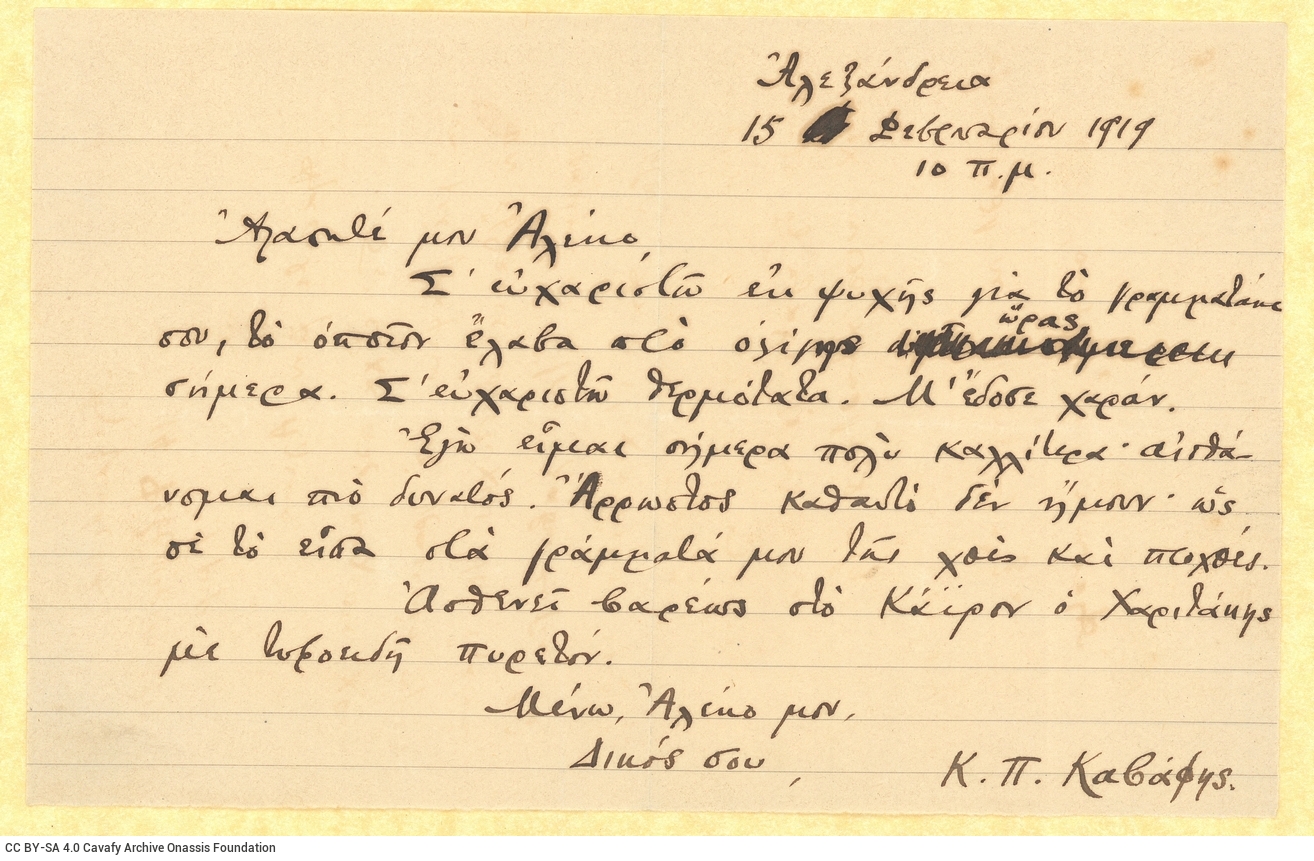 Ἀλεξάνδρεια
15 Φεβρουαρίου 1919
10 π.μ.
Ἀγαπητέ μου Ἀλέκο,
Σ' εὐχαριστῶ ἐκ ψυχῆς γιὰ τὸ γραμματάκι
σου, τὸ ὁποῖον ἔλαβα στὸ ὀλίγες ὥρας
σήμερα. Σ' εὐχαριστῶ θερμότατα. Μ' ἔδοσε χαράν.
Ἐγὼ εἶμαι σήμερα πολὺ καλλίτερα· αἰσθά-
νομαι πιὸ δυνατός. Ἄρρωστος καθαυτὸ δὲν ἤμουν· ὡς
σὲ τὸ εἶπα στὰ γράμματά μου τῆς χθὲς καὶ προχθές.
Ἀσθενεῖ βαρέως στὸ Κάϊρον ὁ Χαριτάκης
μὲ τυφοειδῆ πυρετόν.
Μένω, Ἀλέκο μου,
Δικός σου,
Κ. Π. Καβάφης.
CC BY-SA 4.0 Cavafy Archive Onassis Foundation